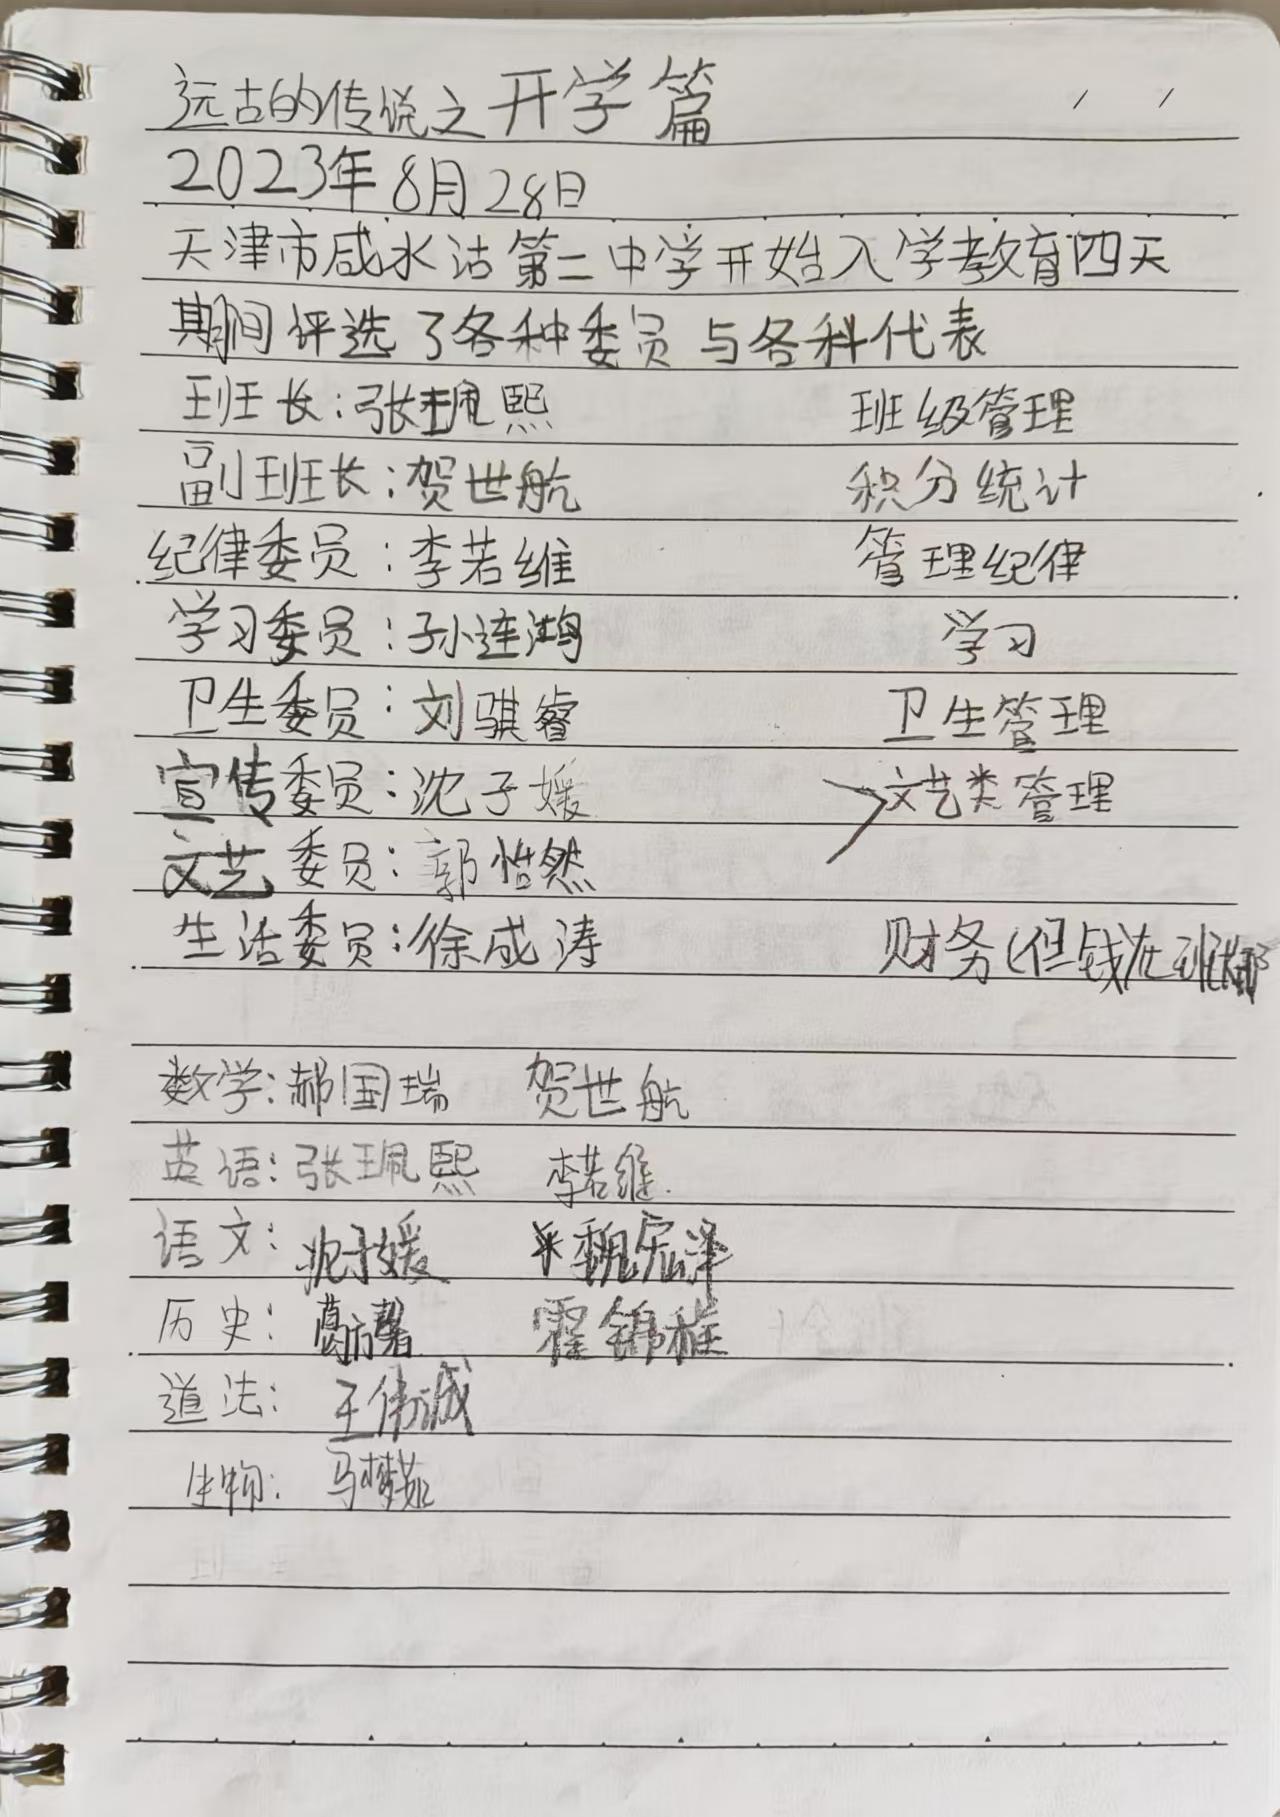 远古的传说之开学篇
2023年8月28日
天津市咸水沽第二中学开始入学教育四天
期间评选了各种委员与各科代表
班长:张珮熙 班级管理
副班长:贺世航 积分统计
纪律委员:李若维 管理纪律
学习委员:孙连鸿 学习
卫生委员:刘骐睿 卫生管理
宣传委员:沈子媛 文艺类管理
文艺委员:郭怡然
生活委员:徐成涛 财务(但钱在班长那
数学:郝国瑞 贺世航
英语:张珮熙 李若维
语文:沈子媛 魏宏泽
历史: 霍锦
道法:王伟诚
生物:马梦茹